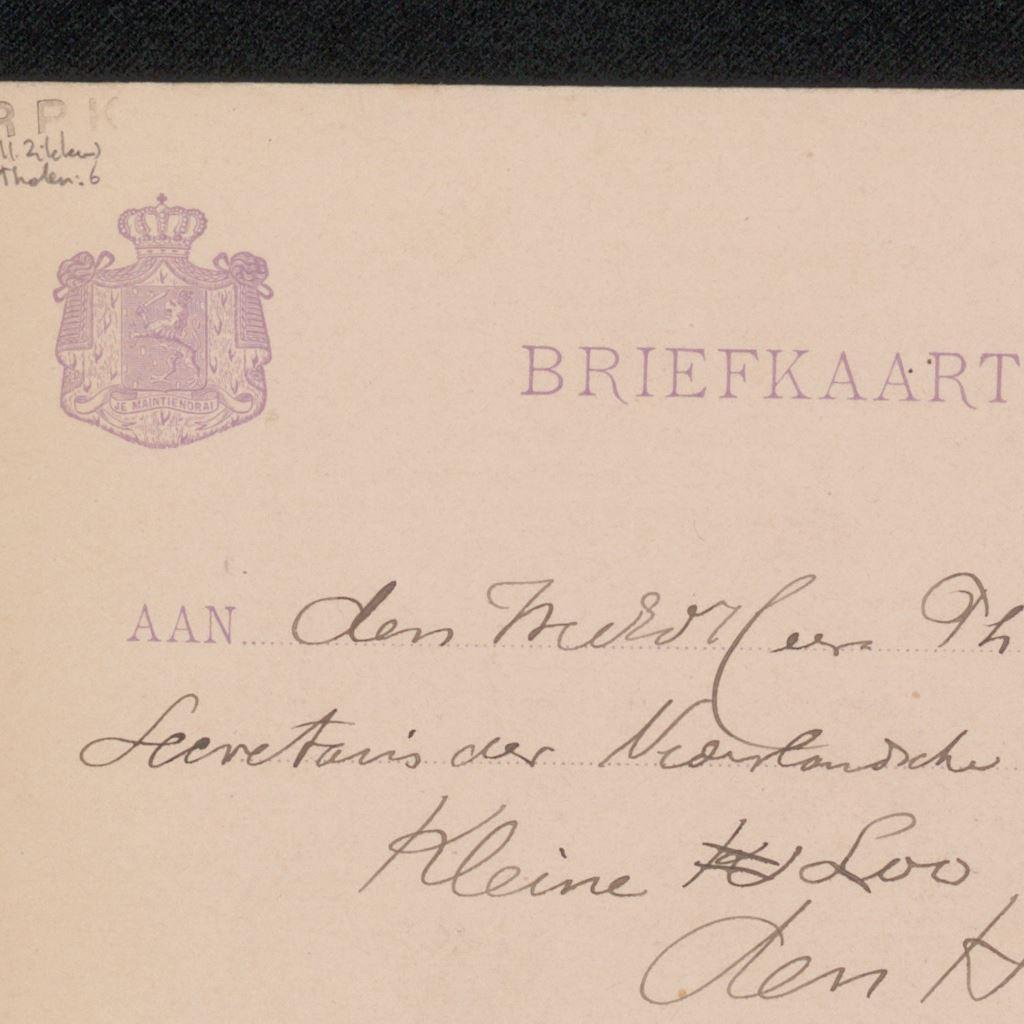 RPK
Zilcken
Tholen: 6
JE MAINTIENDRAI
BRIEFKAART
AAN den WelEd Heer Ph
Secretaris der Nederlandsche
Kleine Loo
den H